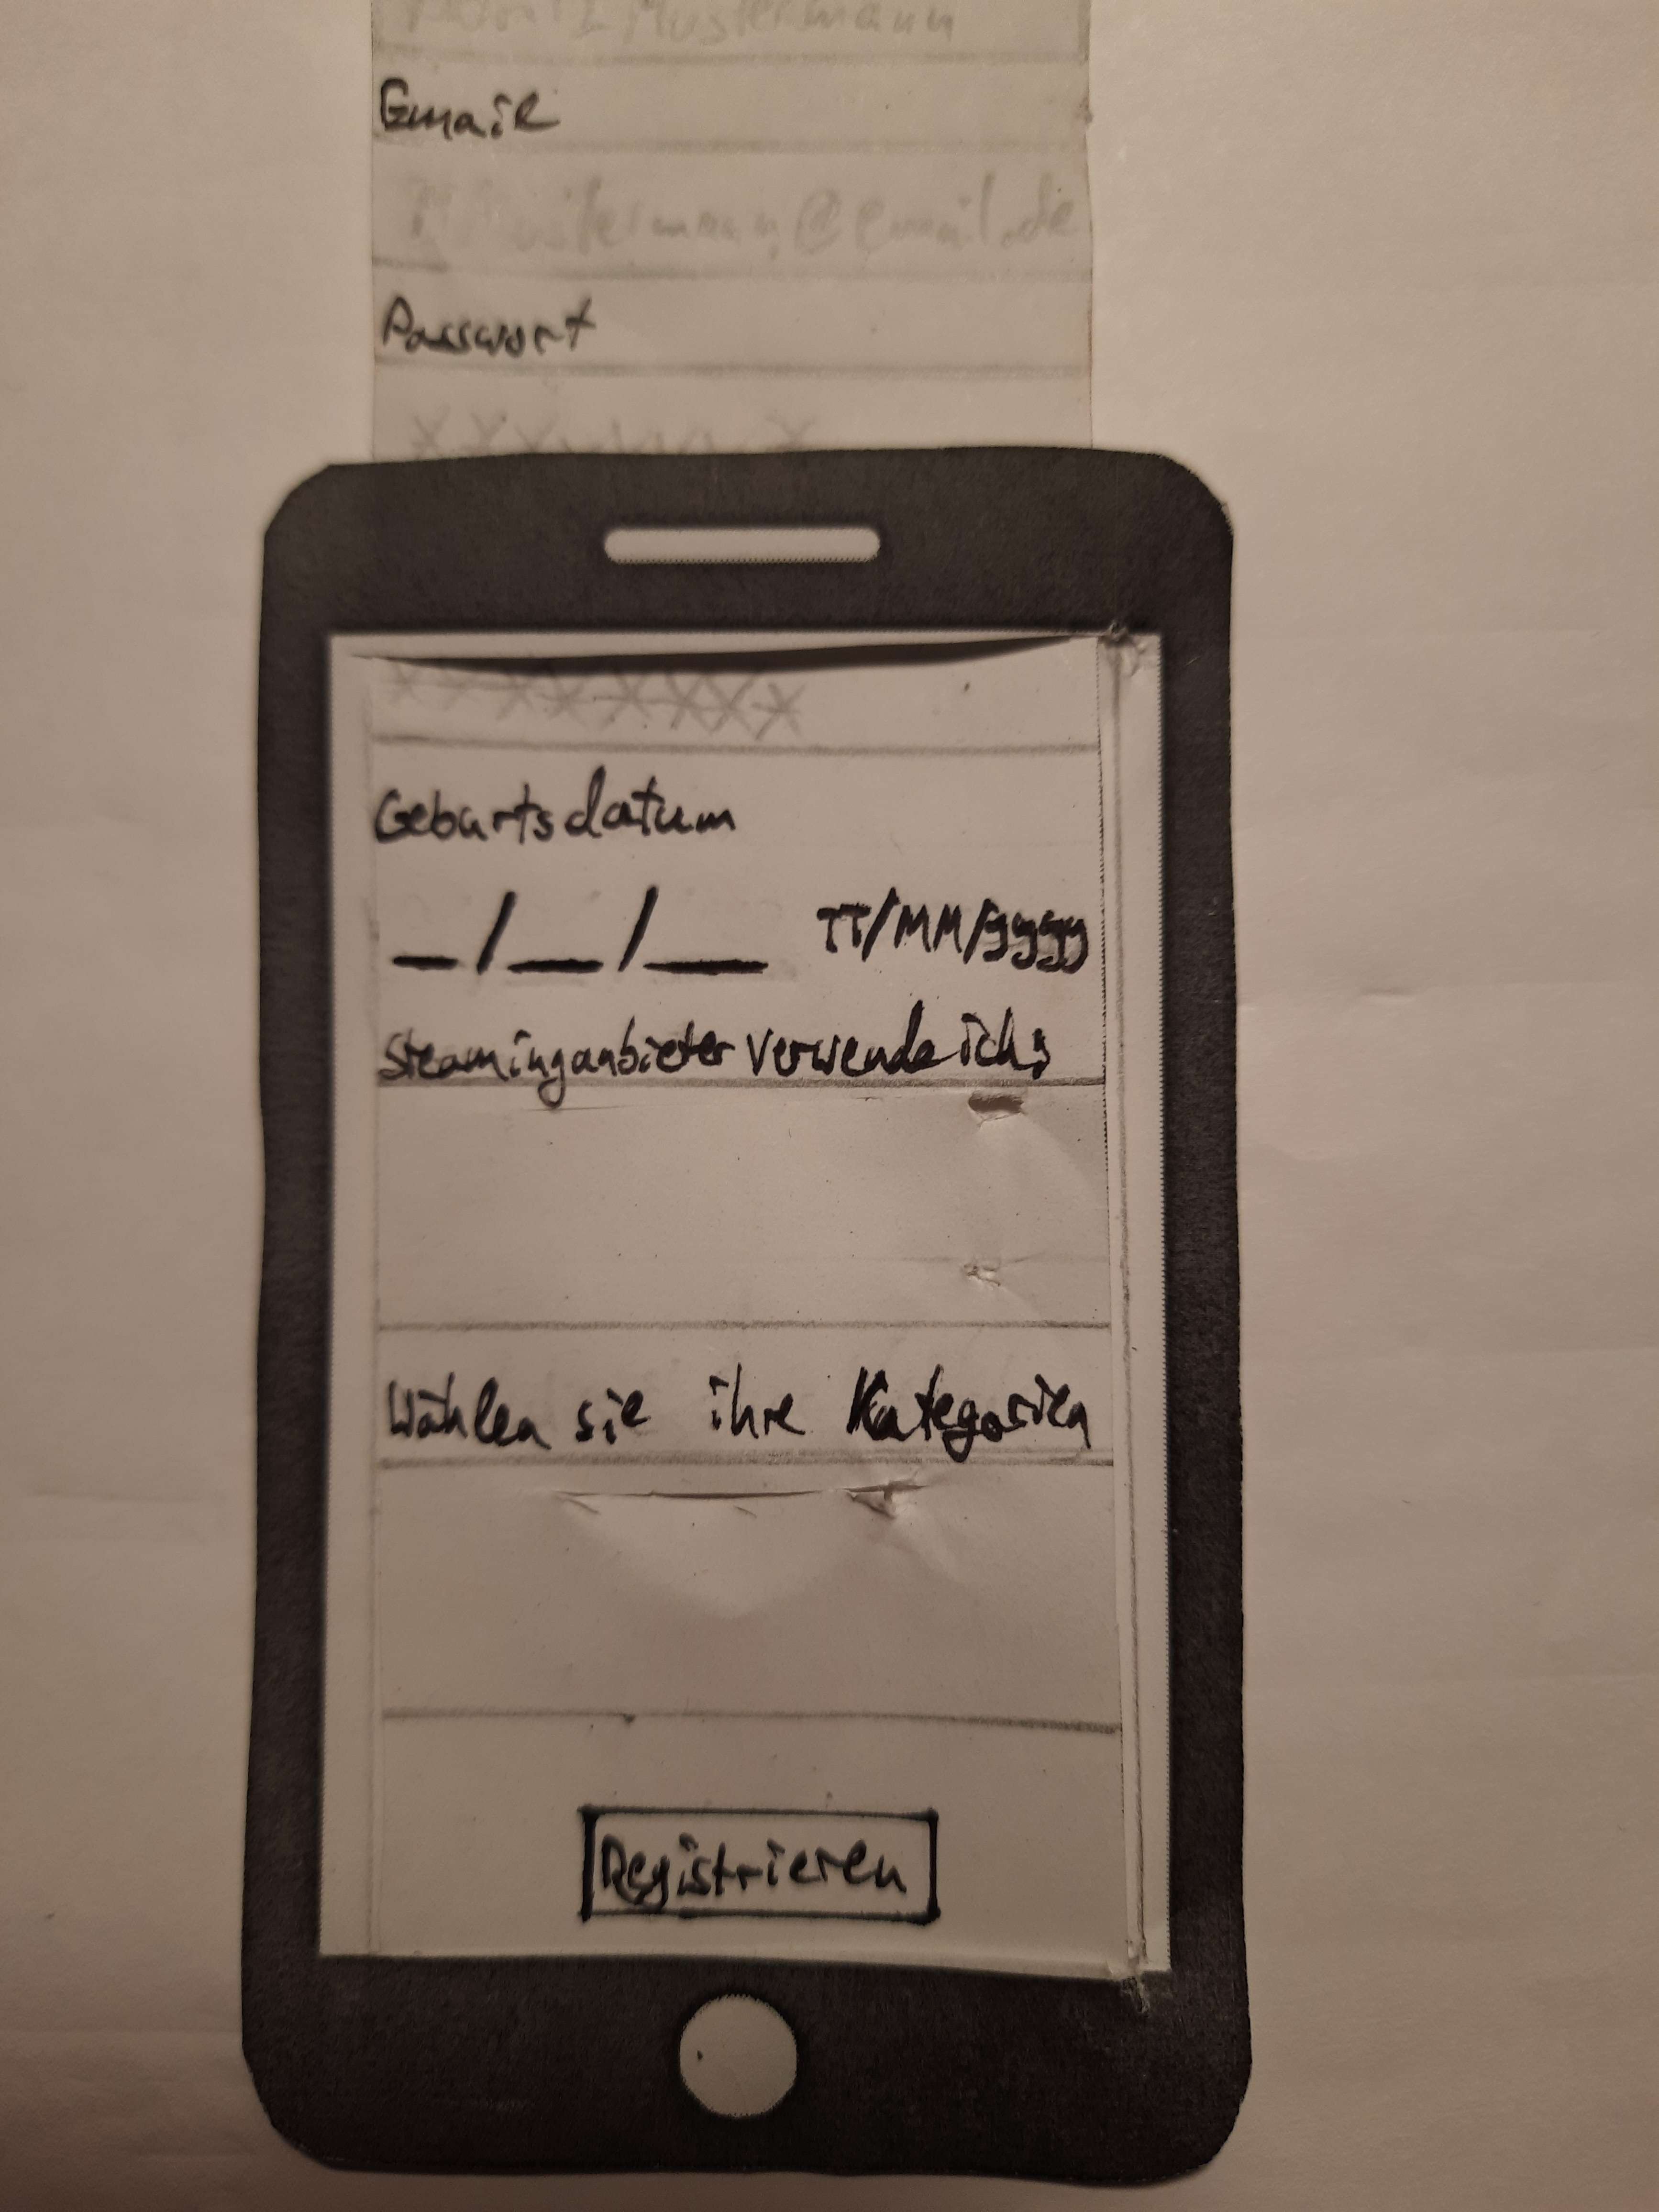 Mustermann
Email
@email.de
Passwort
xxxxxxxx
Geburtsdatum
_/_/_ TT/MM/yyyy
Steaminganbieter verwende ich:
Wählen sie ihre Kategorien
Registrieren